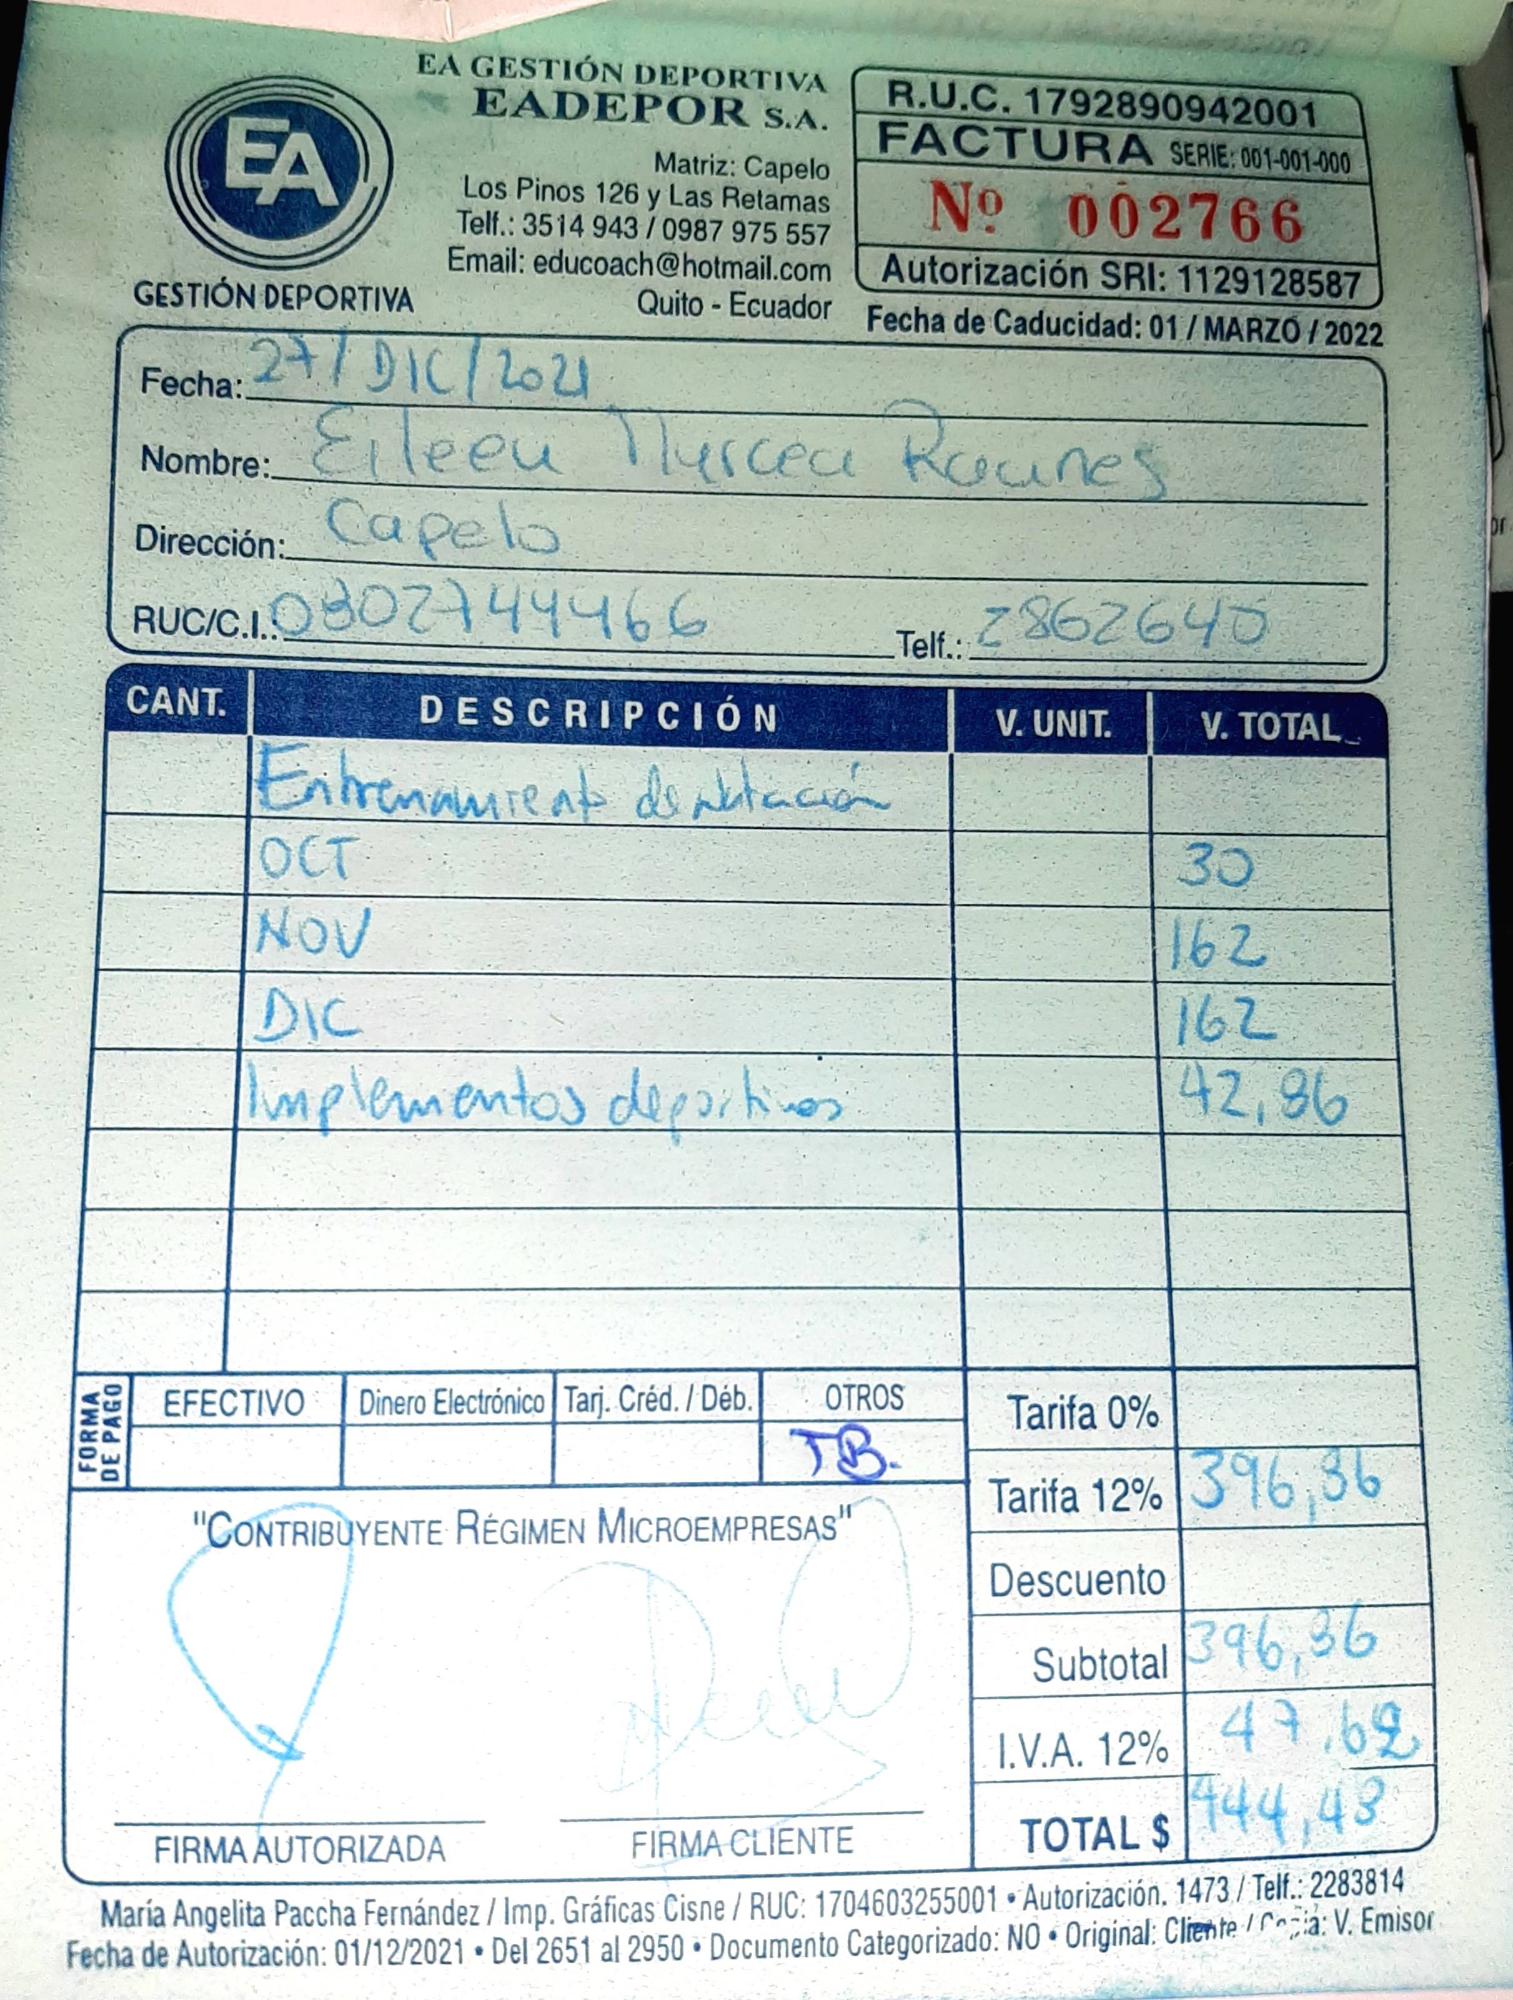 EA GESTIÓN DEPORTIVA
EADEPOR S.A.
Matriz: Capelo
Los Pinos 126 y Las Retamas
Telf.: 3514 943 / 0987 975 557
Email: educoach@hotmail.com
Quito - Ecuador
EA
GESTIÓN DEPORTIVA
R.U.C. 1792890942001
FACTURA SERIE: 001-001-000
Nº 002766
Autorización SRI: 1129128587
Fecha de Caducidad: 01 / MARZO / 2022
Fecha: 27/DIC/2021
Nombre: Eileen
Dirección: Capelo
RUC/C.I.: 0802744466 Telf.: 2862640
CANT. DESCRIPCIÓN V. UNIT. V. TOTAL
Entrenamiento de natación
OCT 30
NOV 162
DIC 162
Implementos deportivos 42,86
FORMA DE PAGO
EFECTIVO Dinero Electrónico Tarj. Créd. / Déb. OTROS
TB.
Tarifa 0%
Tarifa 12% 396,86
Descuento
Subtotal 396,86
I.V.A. 12% 47,62
TOTAL $ 444,48
"CONTRIBUYENTE RÉGIMEN MICROEMPRESAS"
FIRMA AUTORIZADA FIRMA CLIENTE
María Angelita Paccha Fernández / Imp. Gráficas Cisne / RUC: 1704603255001 • Autorización. 1473 / Telf.: 2283814
Fecha de Autorización: 01/12/2021 • Del 2651 al 2950 • Documento Categorizado: NO • Original: Cliente / Copia: V. Emisor